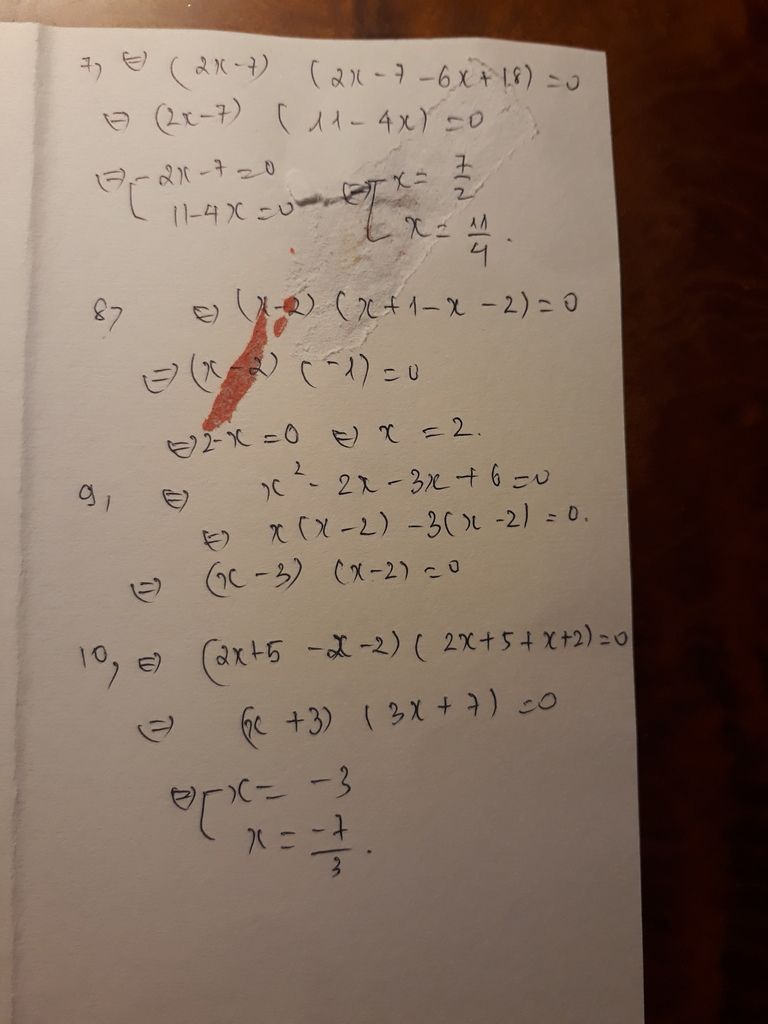 7, ⇔ (2x-7) (2x-7-6x+18)=0
⇔ (2x-7) (11-4x)=0
⇔ [ 2x-7=0 ⇔ [ x= 7/2
11-4x=0 x= 11/4.
8, ⇔ (x-2) (x+1-x-2)=0
⇔ (x-2) (-1)=0
⇔ 2-x=0 ⇔ x=2.
9, ⇔ x² - 2x-3x+6=0
⇔ x(x-2) -3(x-2)=0.
⇔ (x-3) (x-2)=0
10, ⇔ (2x+5 -x-2)(2x+5+x+2)=0
⇔ (x+3) (3x+7)=0
⇔ [ x= -3
x= -7/3.